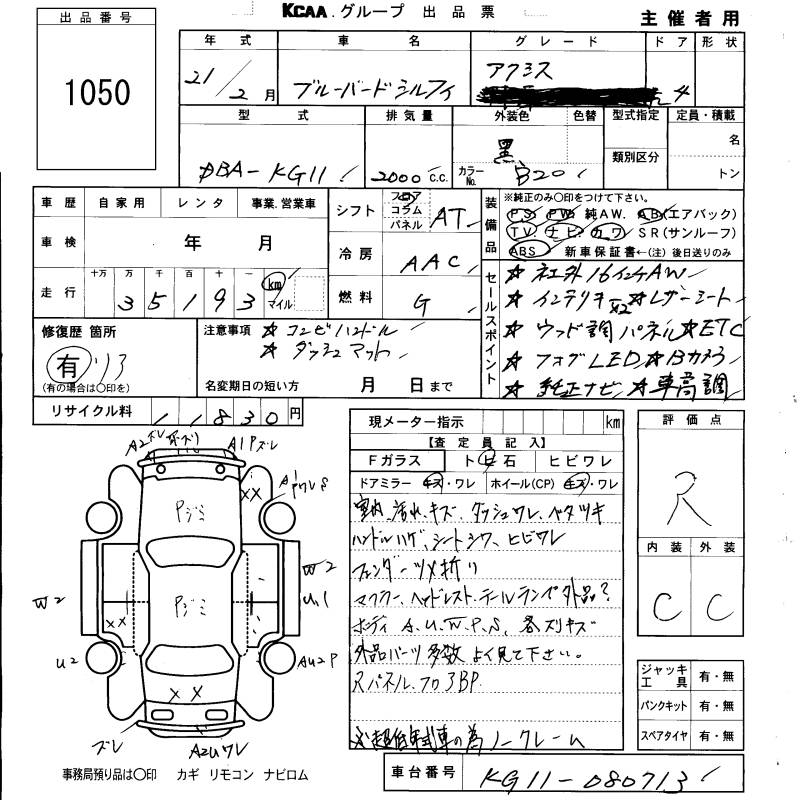 KCAA.グループ 出品票
主催者用
出品番号
1050
年式 車名 グレード ドア 形状
21/2月 ブルーバードシルフィ アクシス 4
型式 排気量 外装色 色替 型式指定 定員・積載
類別区分
名
トン
DBA-KG11 2000c.c. 黒 カラーNo. B20
車歴 自家用 レンタ 事業.営業車
車検 年 月
走行 十万 万 千 百 十 一
3 5 1 9 3 km マイル
シフト フロア コラム パネル AT
冷房 AAC
燃料 G
装備品
※純正のみ〇印をつけて下さい。
PS PW 純AW. AB(エアバック)
TV ナビ カワ SR(サンルーフ)
ABS 新車保証書←(注)後日送りのみ
セールスポイント
★社外16インチAW
★インテリキーx2 ★レザーシート
★ウッド調パネル ★ETC
★フォグLED ★Bカメラ
★純正ナビ ★車高調
修復歴 箇所
有 リア
(有の場合は〇印を)
注意事項 ★コンビハンドル
★ダッシュマット
名変期日の短い方 月 日まで
リサイクル料 11830円
現メーター指示 km
【査定員記入】
Fガラス トビ石 ヒビワレ
ドアミラー キズ・ワレ ホイール(CP) キズ・ワレ
室内、汚れ、キズ、ダッシュワレ、ベタツキ
ハンドルハゲ、シートシワ、ヒビワレ
フェンダーツメ折リ
マフラー、ヘッドレスト、テールランプ外品?
ボディ A.U.W.P.S、各スリキズ
外品パーツ多数 よく見て下さい。
Rパネル、フロアBP
※超低年式車の為ノークレーム
評価点
R
内装 外装
C C
ジャッキ工具 有・無
パンクキット 有・無
スペアタイヤ 有・無
A2ズレ
A1Pズレ
XX
Pジミ
W2
W2
U1
Pジミ
XX
U2
AU2P
XX
ズレ
A2Uワレ
事務局預り品は〇印 カギ リモコン ナビロム
車台番号 KG11-080713